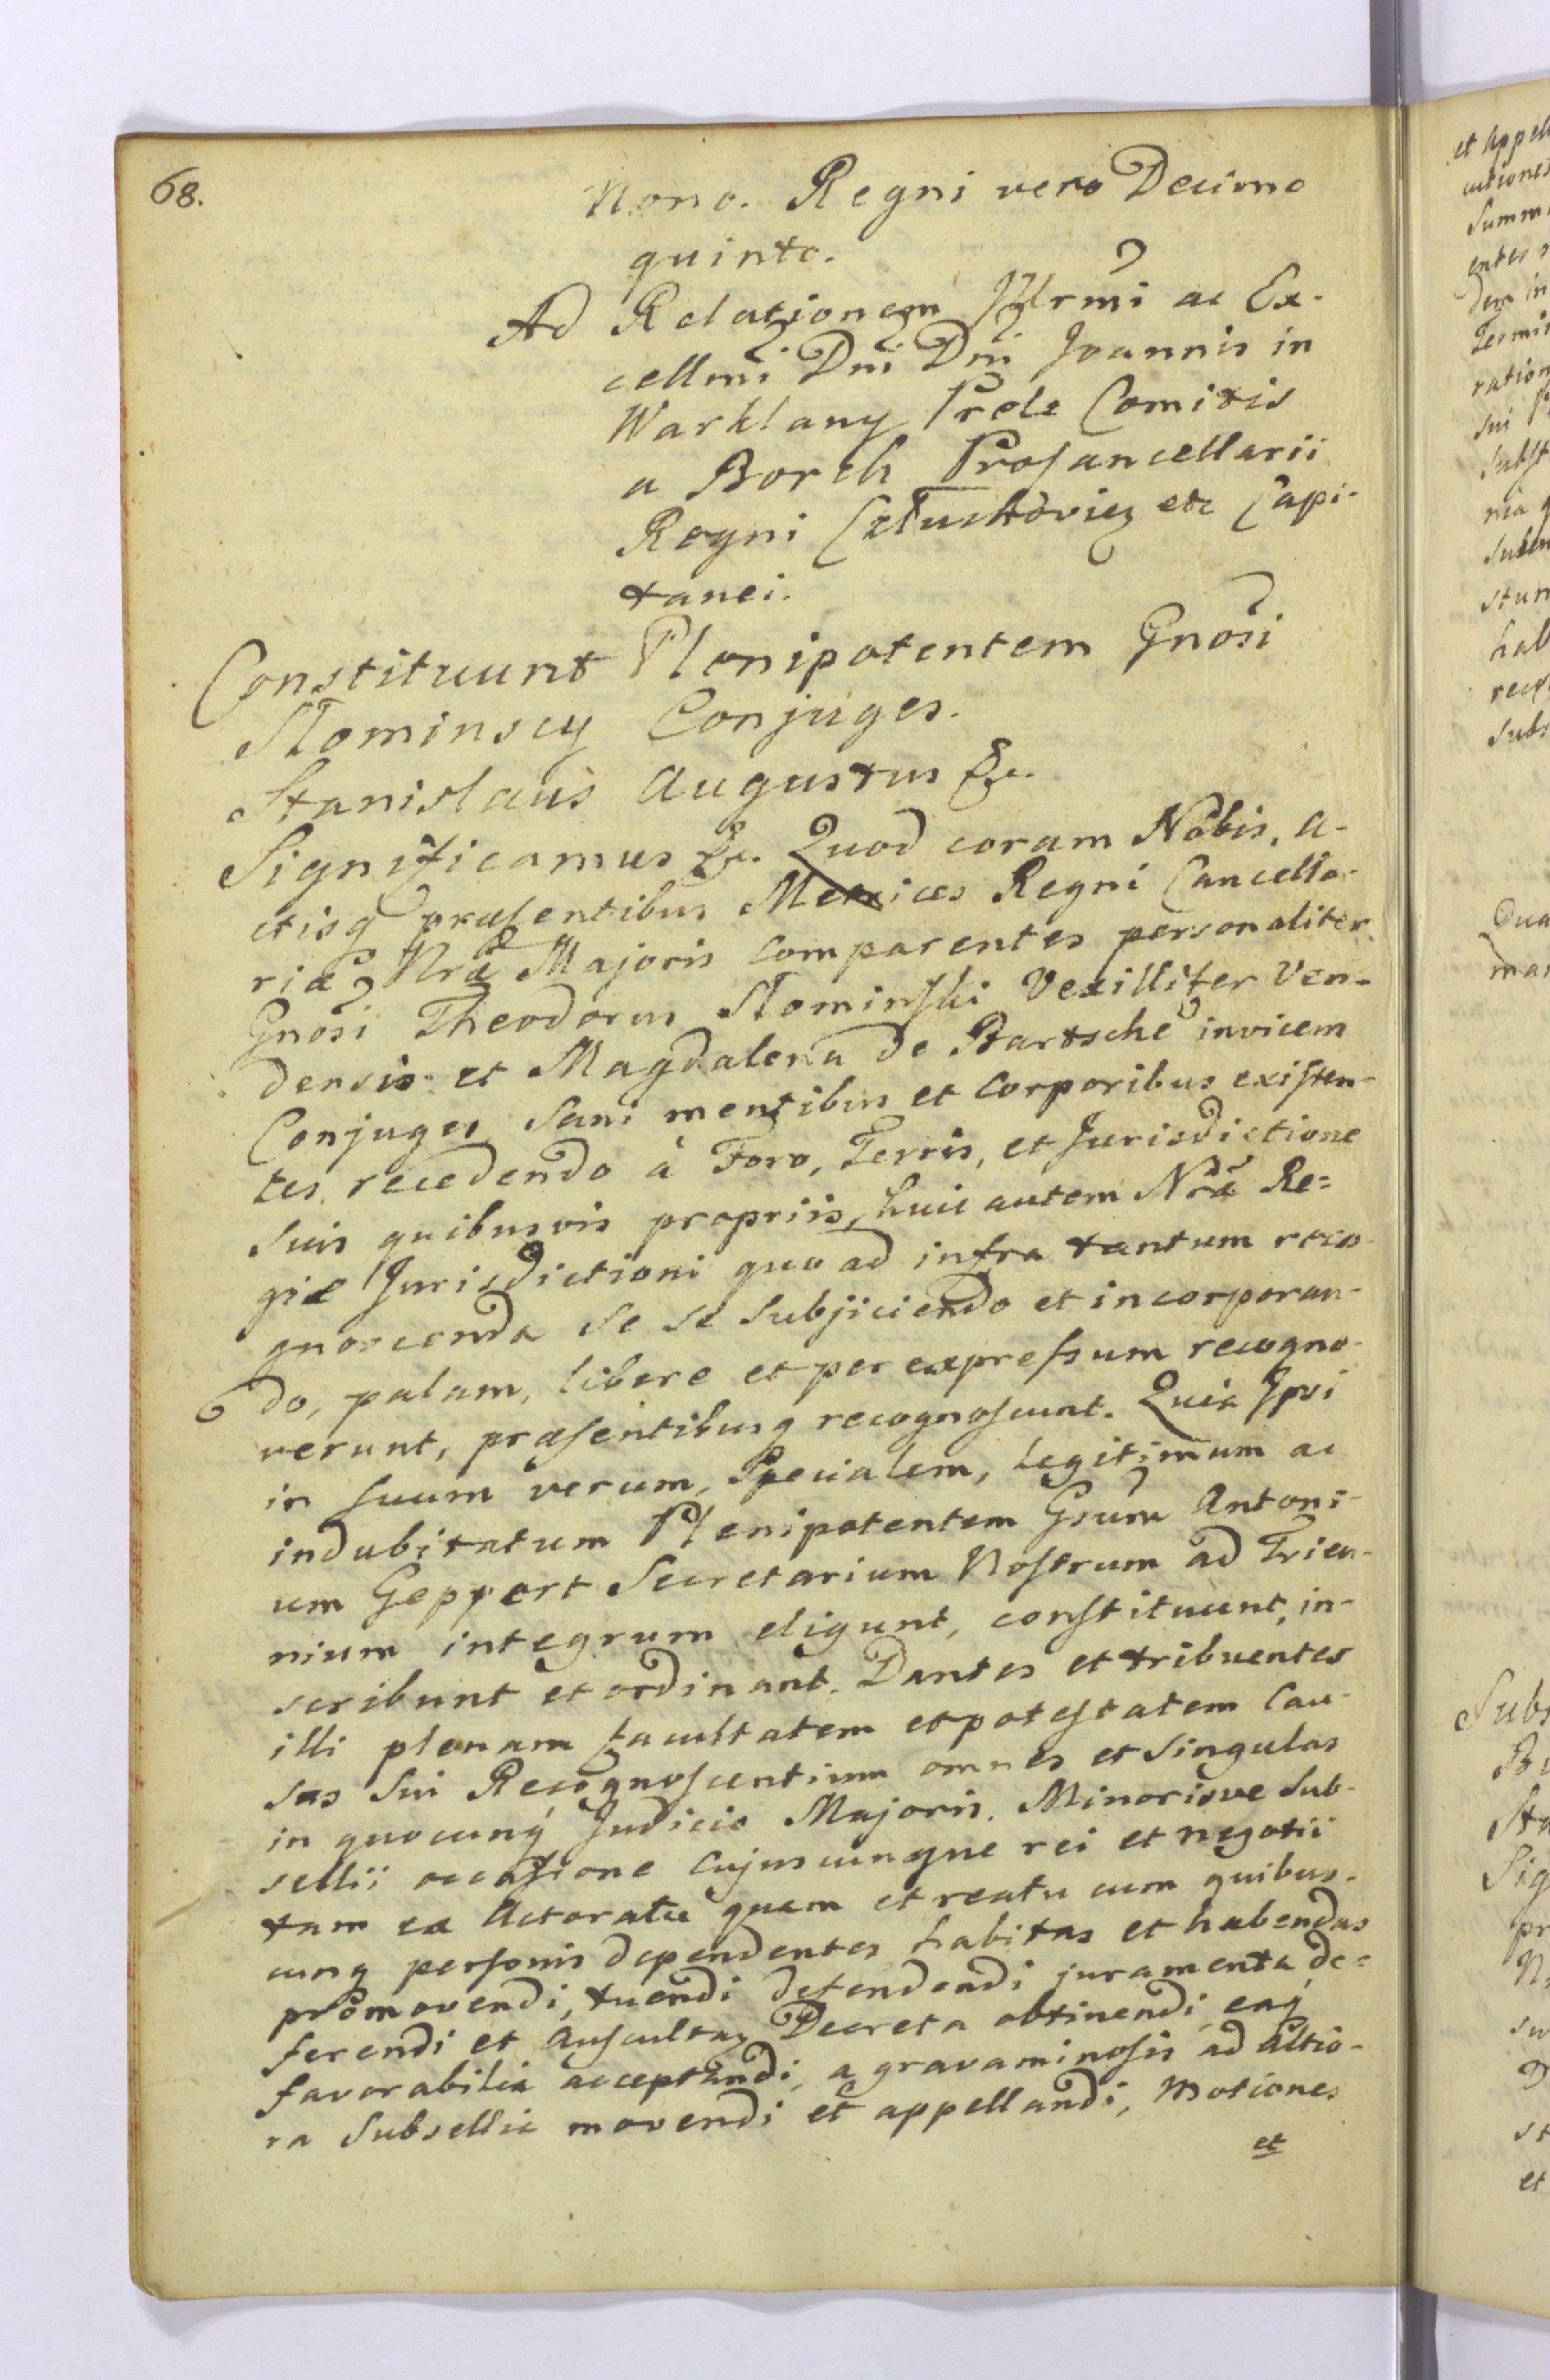 68.
Nono. Regni vero Decimo
quinto.
Ad Relationem Illrmi ac Ex-
cellmi Dni Dni Joannis in
Warklany Prele Comitis
a Borch Procancellarii
Regni Człuchowiey etc Capi-
tanei.
Constituunt Plenipotentem Gnosi
Słominscy Conjuges.
Stanislaus Augustus &c.
Significamus &c. Quod coram Nobis, a-
ctisq præsentibus Metrices Regni Cancella-
riæ Nræ Majoris comparentes personaliter
Gnosi Theodorus Słominski Vexillifer Ven-
densis et Magdalena de Bartsche invicem
Conjuges sani mentibus et corporibus existen-
tes, recedendo à Foro, Terris, et Jurisdictione
suis quibusvis propriis, huic autem Nræ Re-
giæ Jurisdictioni quo ad infra tantum reco-
gnoscenda se se subjiciendo et incorporan-
do, palam, libere et per expressum recogno-
verunt, præsentibusq recognoscunt. Quia Ipsi
in suum verum, Specialem, legitimum ac
indubitatum Plenipotentem Gsum Antoni-
um Geppert Secretarium Nostrum ad Trien-
nium integrum eligunt, constituunt, in-
scribunt et ordinant. Dantes et tribuentes
illi plenam facultatem et potestatem Cau-
sas sui Recognoscentium omnes et singulas
in quocunq Judicio Majoris, Minorisve sub-
sellii occasione cujuscunque rei et negotii
tam ex Actoratu quam et reatu cum quibus-
cunq personis dependentes, habitas et habendas
promovendi, tuendi defendendi juramenta de-
ferendi et auscultay Decreta obtinendi, eaq
favorabilia acceptandi, a gravaminosis ad altio-
ra subsellia movendi et appellandi, Motiones
et